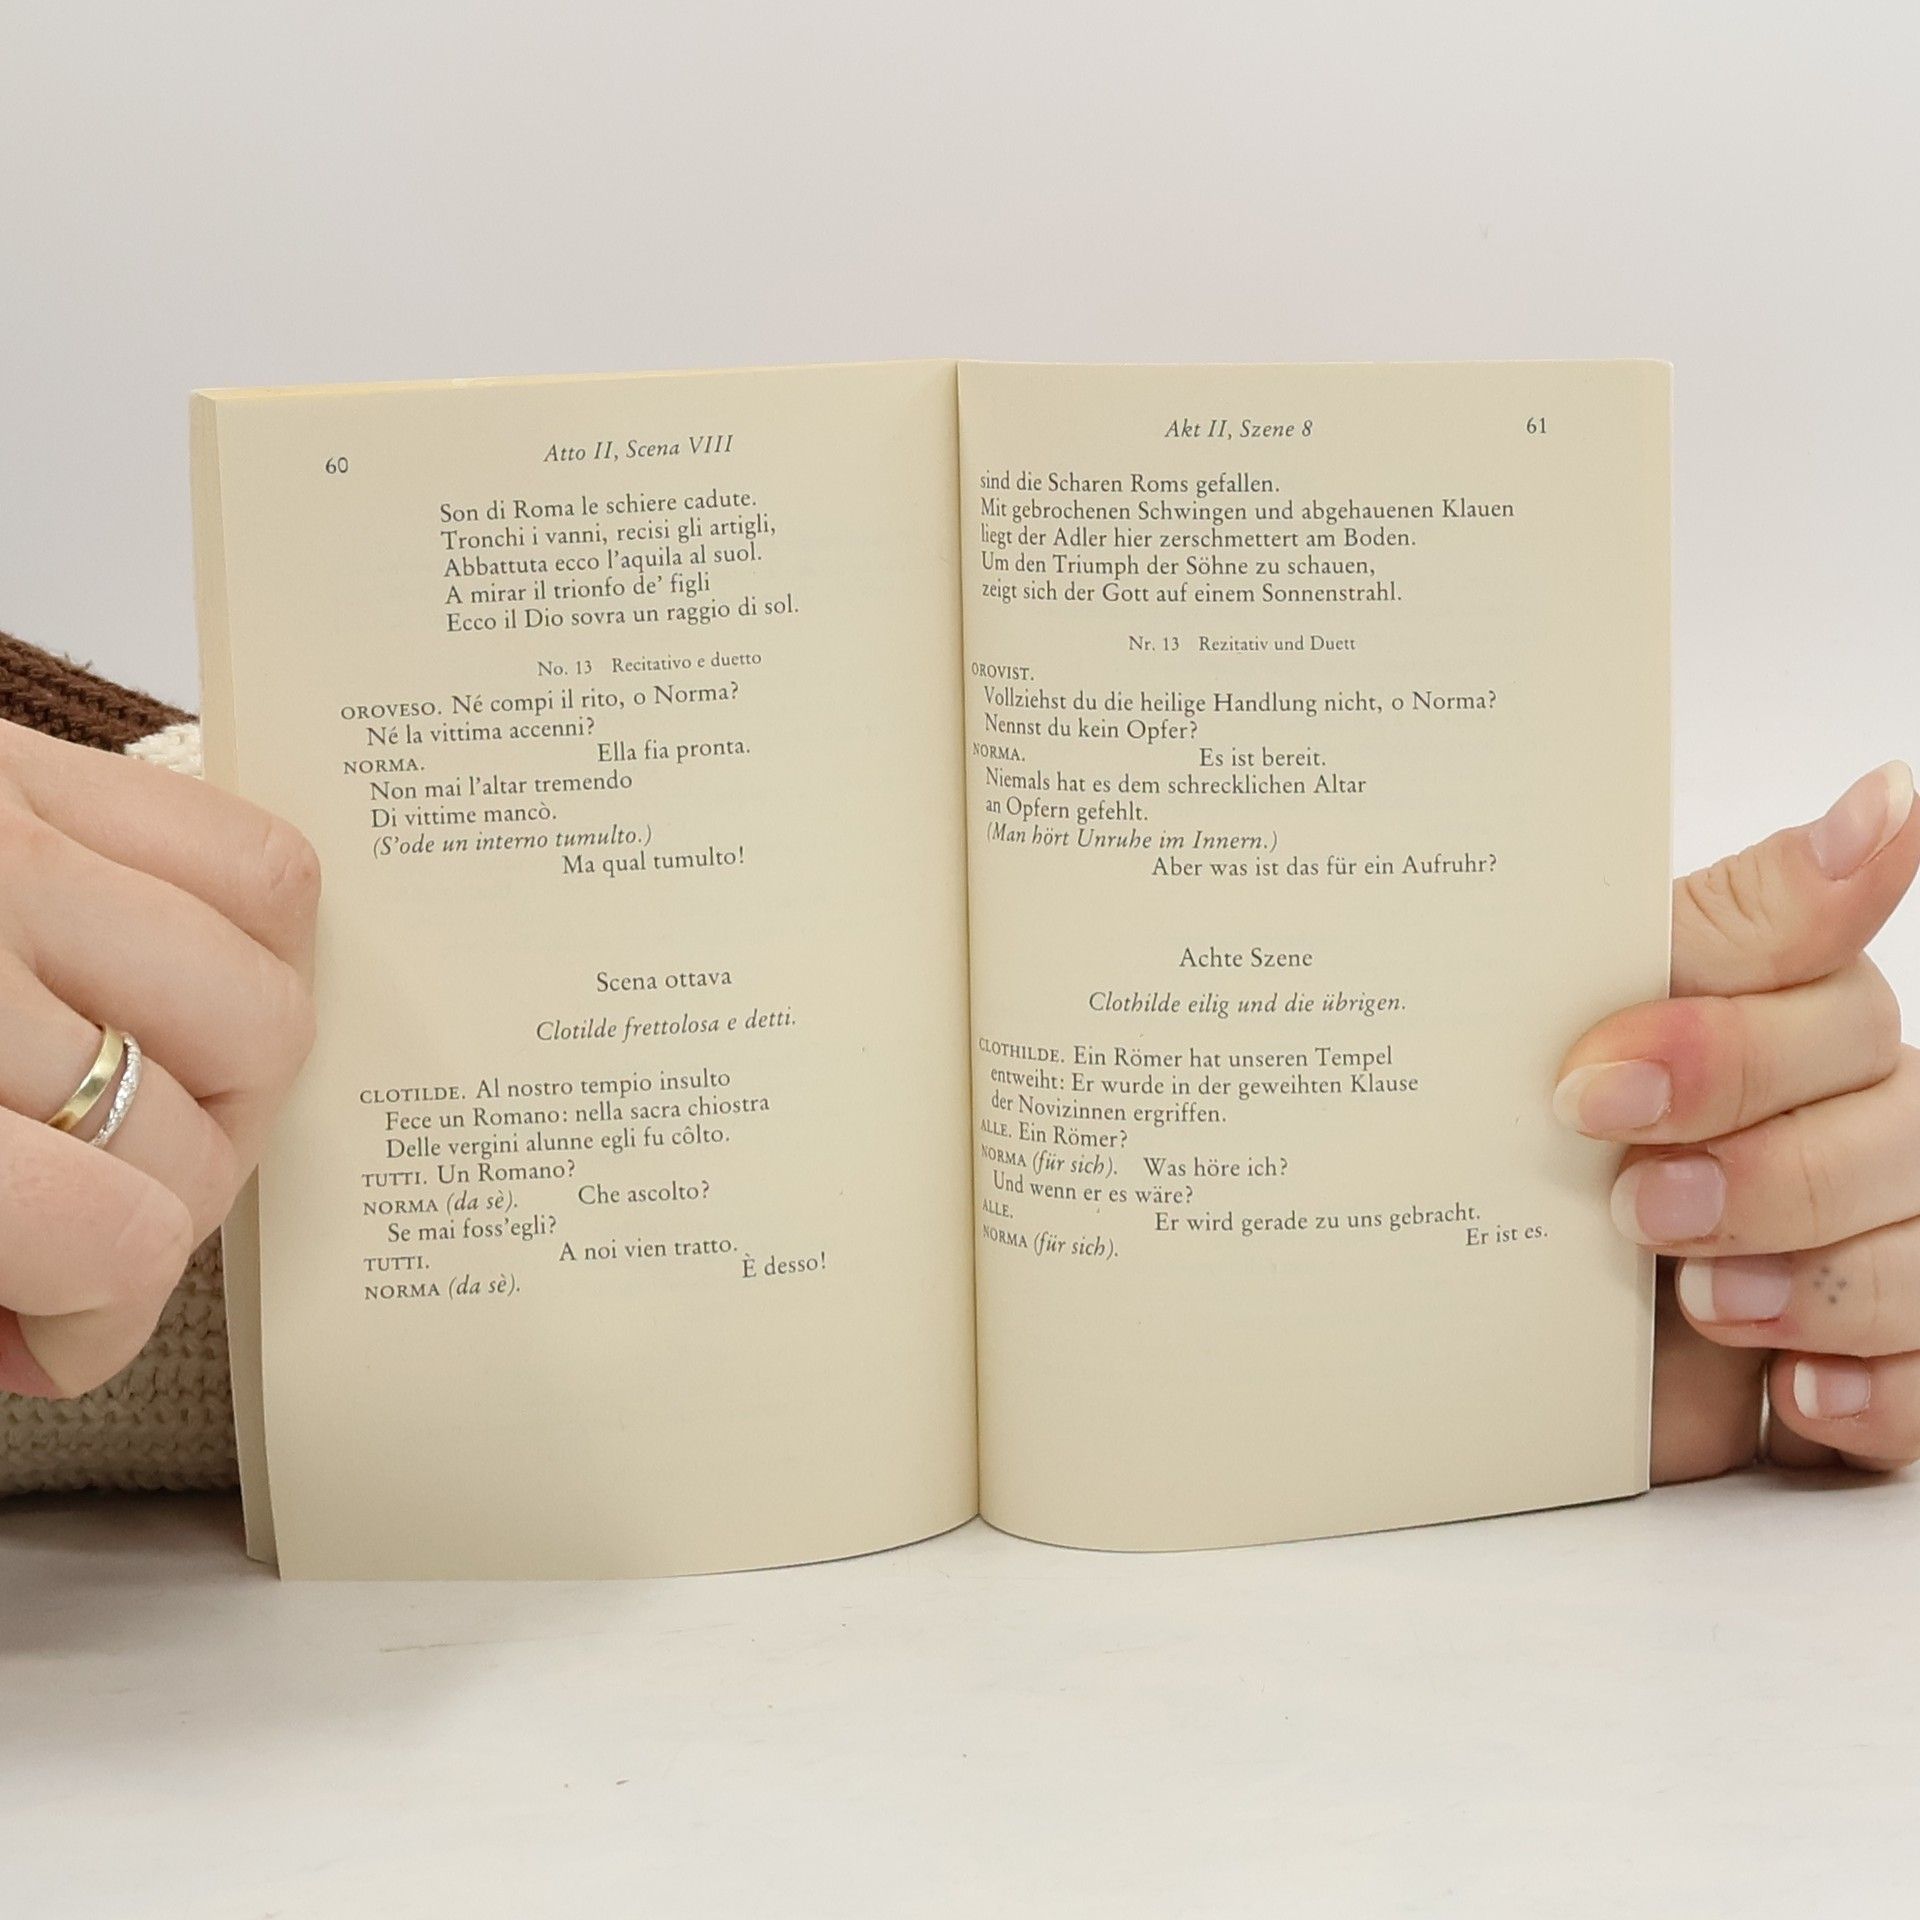 60
Atto II, Scena VIII
Son di Roma le schiere cadute.
Tronchi i vanni, recisi gli artigli,
Abbattuta ecco l'aquila al suol.
A mirar il trionfo de' figli
Ecco il Dio sovra un raggio di sol.
No. 13 Recitativo e duetto
OROVESO. Né compi il rito, o Norma?
Né la vittima accenni?
NORMA. Ella fia pronta.
Non mai l'altar tremendo
Di vittime mancò.
(S'ode un interno tumulto.)
Ma qual tumulto!
Scena ottava
Clotilde frettolosa e detti.
CLOTILDE. Al nostro tempio insulto
Fece un Romano: nella sacra chiostra
Delle vergini alunne egli fu côlto.
TUTTI. Un Romano?
NORMA (da sè). Che ascolto?
Se mai foss'egli?
TUTTI. A noi vien tratto.
NORMA (da sè). È desso!
Akt II, Szene 8
61
sind die Scharen Roms gefallen.
Mit gebrochenen Schwingen und abgehauenen Klauen
liegt der Adler hier zerschmettert am Boden.
Um den Triumph der Söhne zu schauen,
zeigt sich der Gott auf einem Sonnenstrahl.
Nr. 13 Rezitativ und Duett
OROVIST.
Vollziehst du die heilige Handlung nicht, o Norma?
Nennst du kein Opfer?
NORMA. Es ist bereit.
Niemals hat es dem schrecklichen Altar
an Opfern gefehlt.
(Man hört Unruhe im Innern.)
Aber was ist das für ein Aufruhr?
Achte Szene
Clothilde eilig und die übrigen.
CLOTHILDE. Ein Römer hat unseren Tempel
entweiht: Er wurde in der geweihten Klause
der Novizinnen ergriffen.
ALLE. Ein Römer?
NORMA (für sich). Was höre ich?
Und wenn er es wäre?
ALLE. Er wird gerade zu uns gebracht.
NORMA (für sich). Er ist es.